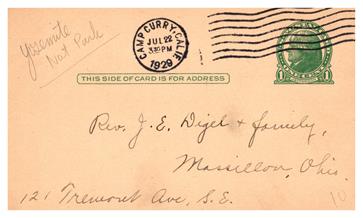 Yosemite
Nat Park
CAMP CURRY, CALIF.
JUL 22
3 30 PM
1929
THIS SIDE OF CARD IS FOR ADDRESS
1 1
Rev. J. E. Digel & family,
Massillon, Ohio.
121 Tremont Ave, S.E.
10